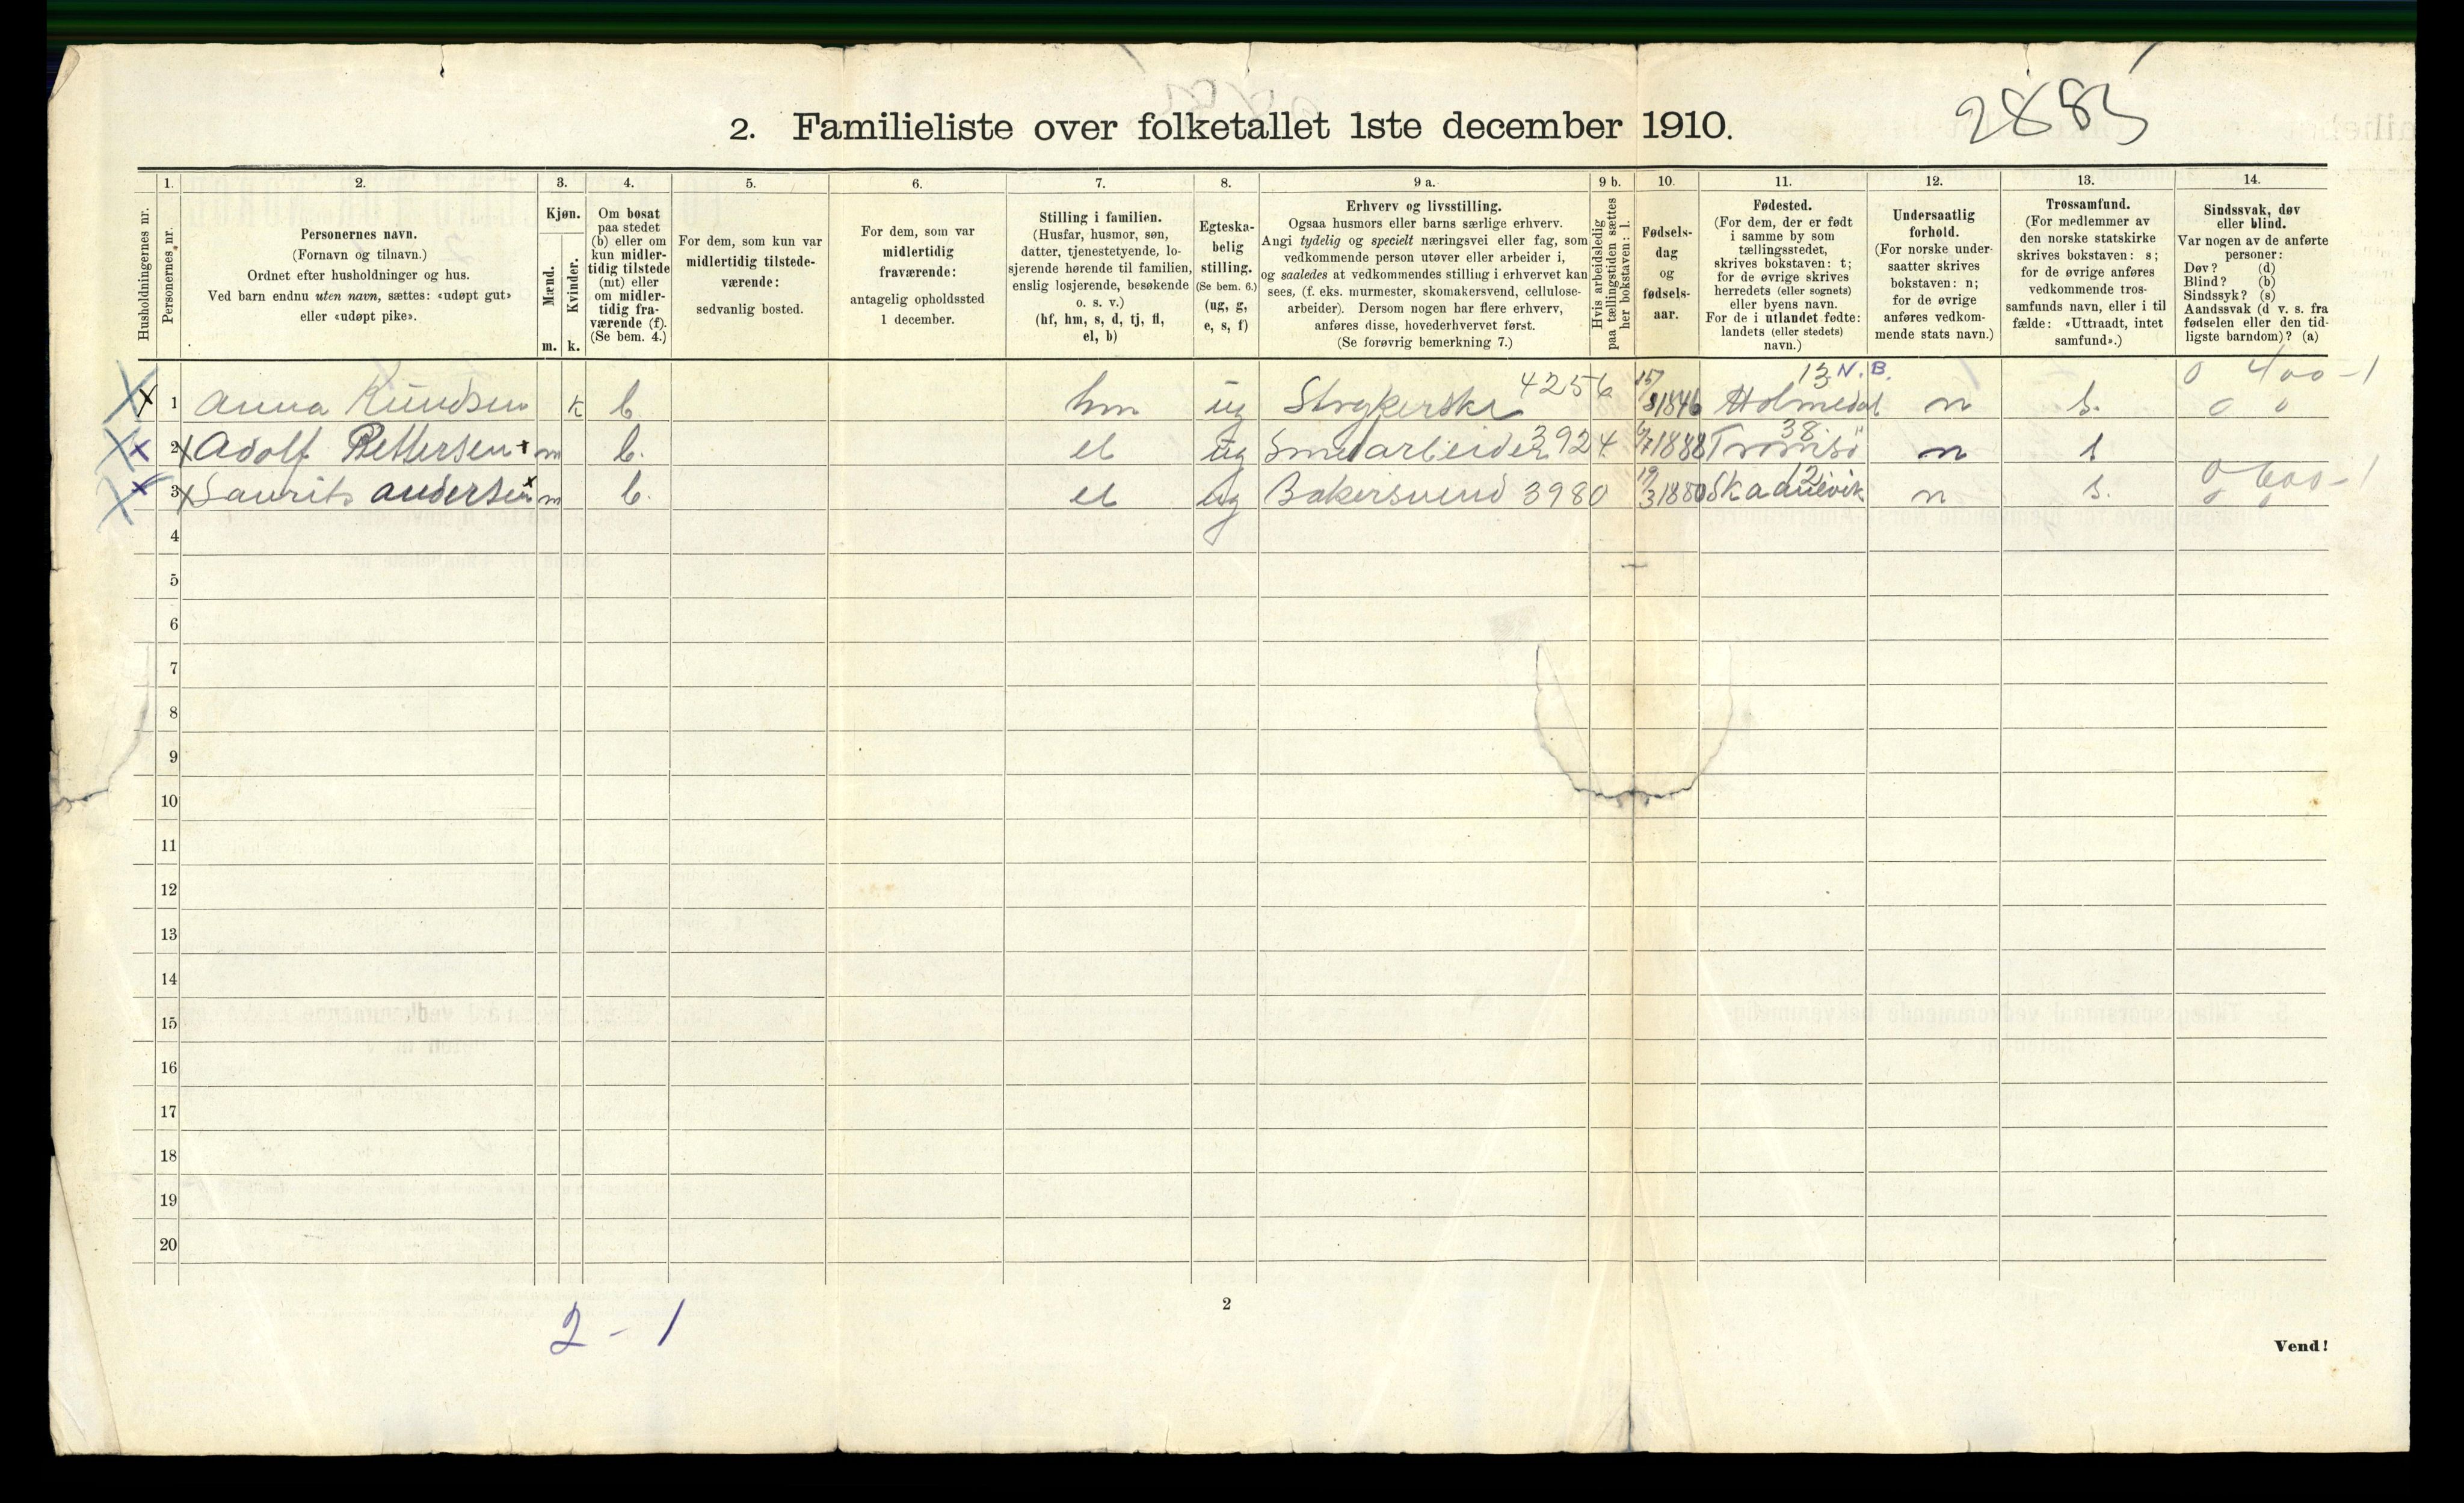 2. Familieliste over folketallet 1ste december 1910.
2883
Husholdningernes nr.
1.
Personernes nr.
2.
Personernes navn.
(Fornavn og tilnavn.)
Ordnet efter husholdninger og hus.
Ved barn endnu uten navn, sættes: «udøpt gut»
eller «udøpt pike».
3.
Kjøn.
Mænd.
Kvinder.
m. k.
4.
Om bosat
paa stedet
(b) eller om
kun midler-
tidig tilstede
(mt) eller
om midler-
tidig fra-
værende (f).
(Se bem. 4.)
5.
For dem, som kun var
midlertidig tilstede-
værende:
sedvanlig bosted.
6.
For dem, som var
midlertidig
fraværende:
antagelig opholdssted
1 december.
7.
Stilling i familien.
(Husfar, husmor, søn,
datter, tjenestetyende, lo-
sjerende hørende til familien,
enslig losjerende, besøkende
o. s. v.)
(hf, hm, s, d, tj, fl,
el, b)
8.
Egteska-
belig
stilling.
(Se bem. 6.)
(ug, g,
e, s, f)
9 a.
Erhverv og livsstilling.
Ogsaa husmors eller barns særlige erhverv.
Angi tydelig og specielt næringsvei eller fag, som
vedkommende person utøver eller arbeider i,
og saaledes at vedkommendes stilling i erhvervet kan
sees, (f. eks. murmester, skomakersvend, cellulose-
arbeider). Dersom nogen har flere erhverv,
anføres disse, hovederhvervet først.
(Se forøvrig bemerkning 7.)
9 b.
Hvis arbeidsledig
paa tællingstiden sættes
her bokstaven: l.
10.
Fødsels-
dag
og
fødsels-
aar.
11.
Fødested.
(For dem, der er født
i samme by som
tællingsstedet,
skrives bokstaven: t;
for de øvrige skrives
herredets (eller sognets)
eller byens navn.
For de i utlandet fødte:
landets (eller stedets)
navn.)
12.
Undersaatlig
forhold.
(For norske under-
saatter skrives
bokstaven: n;
for de øvrige
anføres vedkom-
mende stats navn.)
13.
Trossamfund.
(For medlemmer av
den norske statskirke
skrives bokstaven: s;
for de øvrige anføres
vedkommende tros-
samfunds navn, eller i til
fælde: «Uttraadt, intet
samfund».)
14.
Sindssvak, døv
eller blind.
Var nogen av de anførte
personer:
Døv? (d)
Blind? (b)
Sindssyk? (s)
Aandssvak (d v. s. fra
fødselen eller den tid-
ligste barndom)? (a)
13 N. B. 0 400-1
1 Anna Knudsen k b. hm ug Strykerske 4256 15/8 1846 Holmedal n s. 0 0
38
2 Adolf Pettersen m b. el ug Smedarbeider 3924 6/7 1888 Tromsö n s
12 0 600-1
3 Laurits Andersen m b. el ug Bakersvend 3980 19/3 1880 Skaanevik n s. 0 0
4
5
6
7
8
9
10
11
12
13
14
15
16
17
18
19
20
2
2 - 1
Vend!